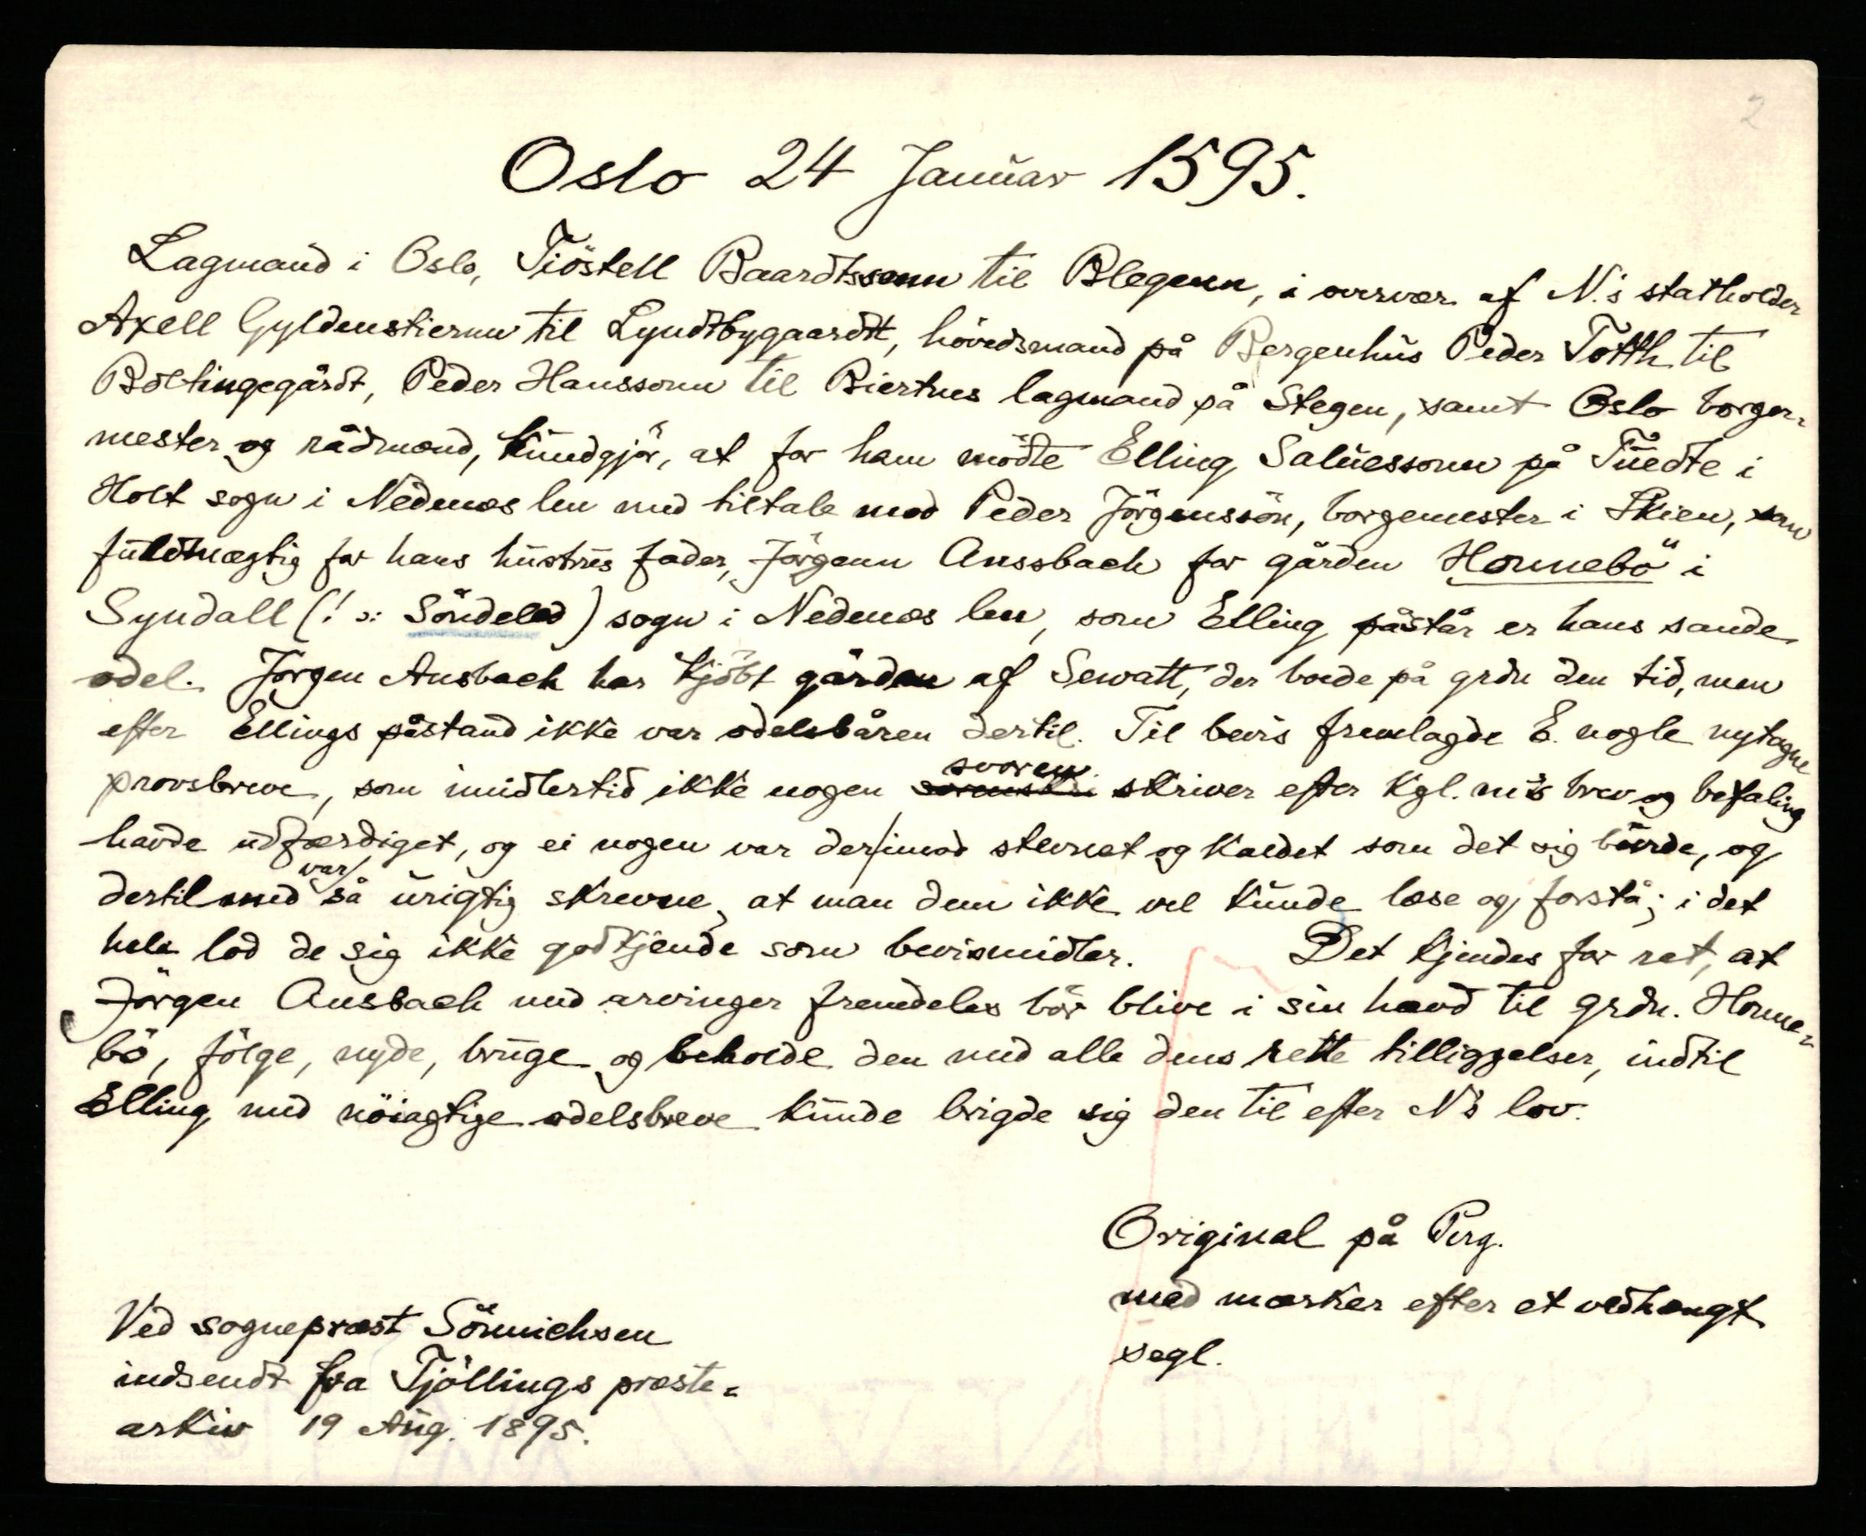 2
Oslo 24 Januar 1595.
Lagmand i Oslo, Tiöstell Baardtssonn til Blegenn, i overvær af N.s statholder
Axell Gyldenstiernn til Lyndtbygaardtt, hövedsmand på Bergenhus Peder Totth til
Boltingegårdt, Peder Hanssonn til Biertnes lagmand på Stegen, samt Oslo borger-
mester og rådmænd, kundgjör, at for ham mödte Elling Saluessonn på Tuedte i
Holt sogn i Nedenæs len med tiltale mod Peder Jörgenssön, borgemester i Skien, som
fuldmægtig for hans hustrus fader, Jörgenn Anssbach for gården Honnebö i
Syndall (! ɔ: Söndeled) sogn i Nedenæs len, som Elling påstår er hans sande
odel. Jörgen Ansbach har kjöbt gården af Sewatt, der boede på grdn den tid, men
efter Ellings påstand ikke var odelsbåren dertil. Til bevis fremlagde E. nogle nytagne
provsbreve, som imidlertid ikke nogen svoren skriver efter Kgl. m's brev og befaling
havde udfærdiget, og ei nogen var der/imod stevnet og kaldet som det sig burde, og
dertil med var så urigtig skrevne, at man dem ikke vel kunde læse og forstå; i det
hele lod de sig ikke godkjende som bevismidler. Det kjendes for ret, at
Jörgen Ansbach med arvinger fremdeles bör blive i sin hævd til grdn. Honne-
bö, fölge, nyde, bruge og beholde den med alle dens rette tilliggelser, indtil
Elling med nöiagtige odelsbreve kunde brigde sig den til efter N's lov.
Original på Perg.
med mærker efter et vedhængt
segl.
Ved sognepræst Sönnichsen
indsendt fra Tjöllings præste-
arkiv 19 Aug. 1895.